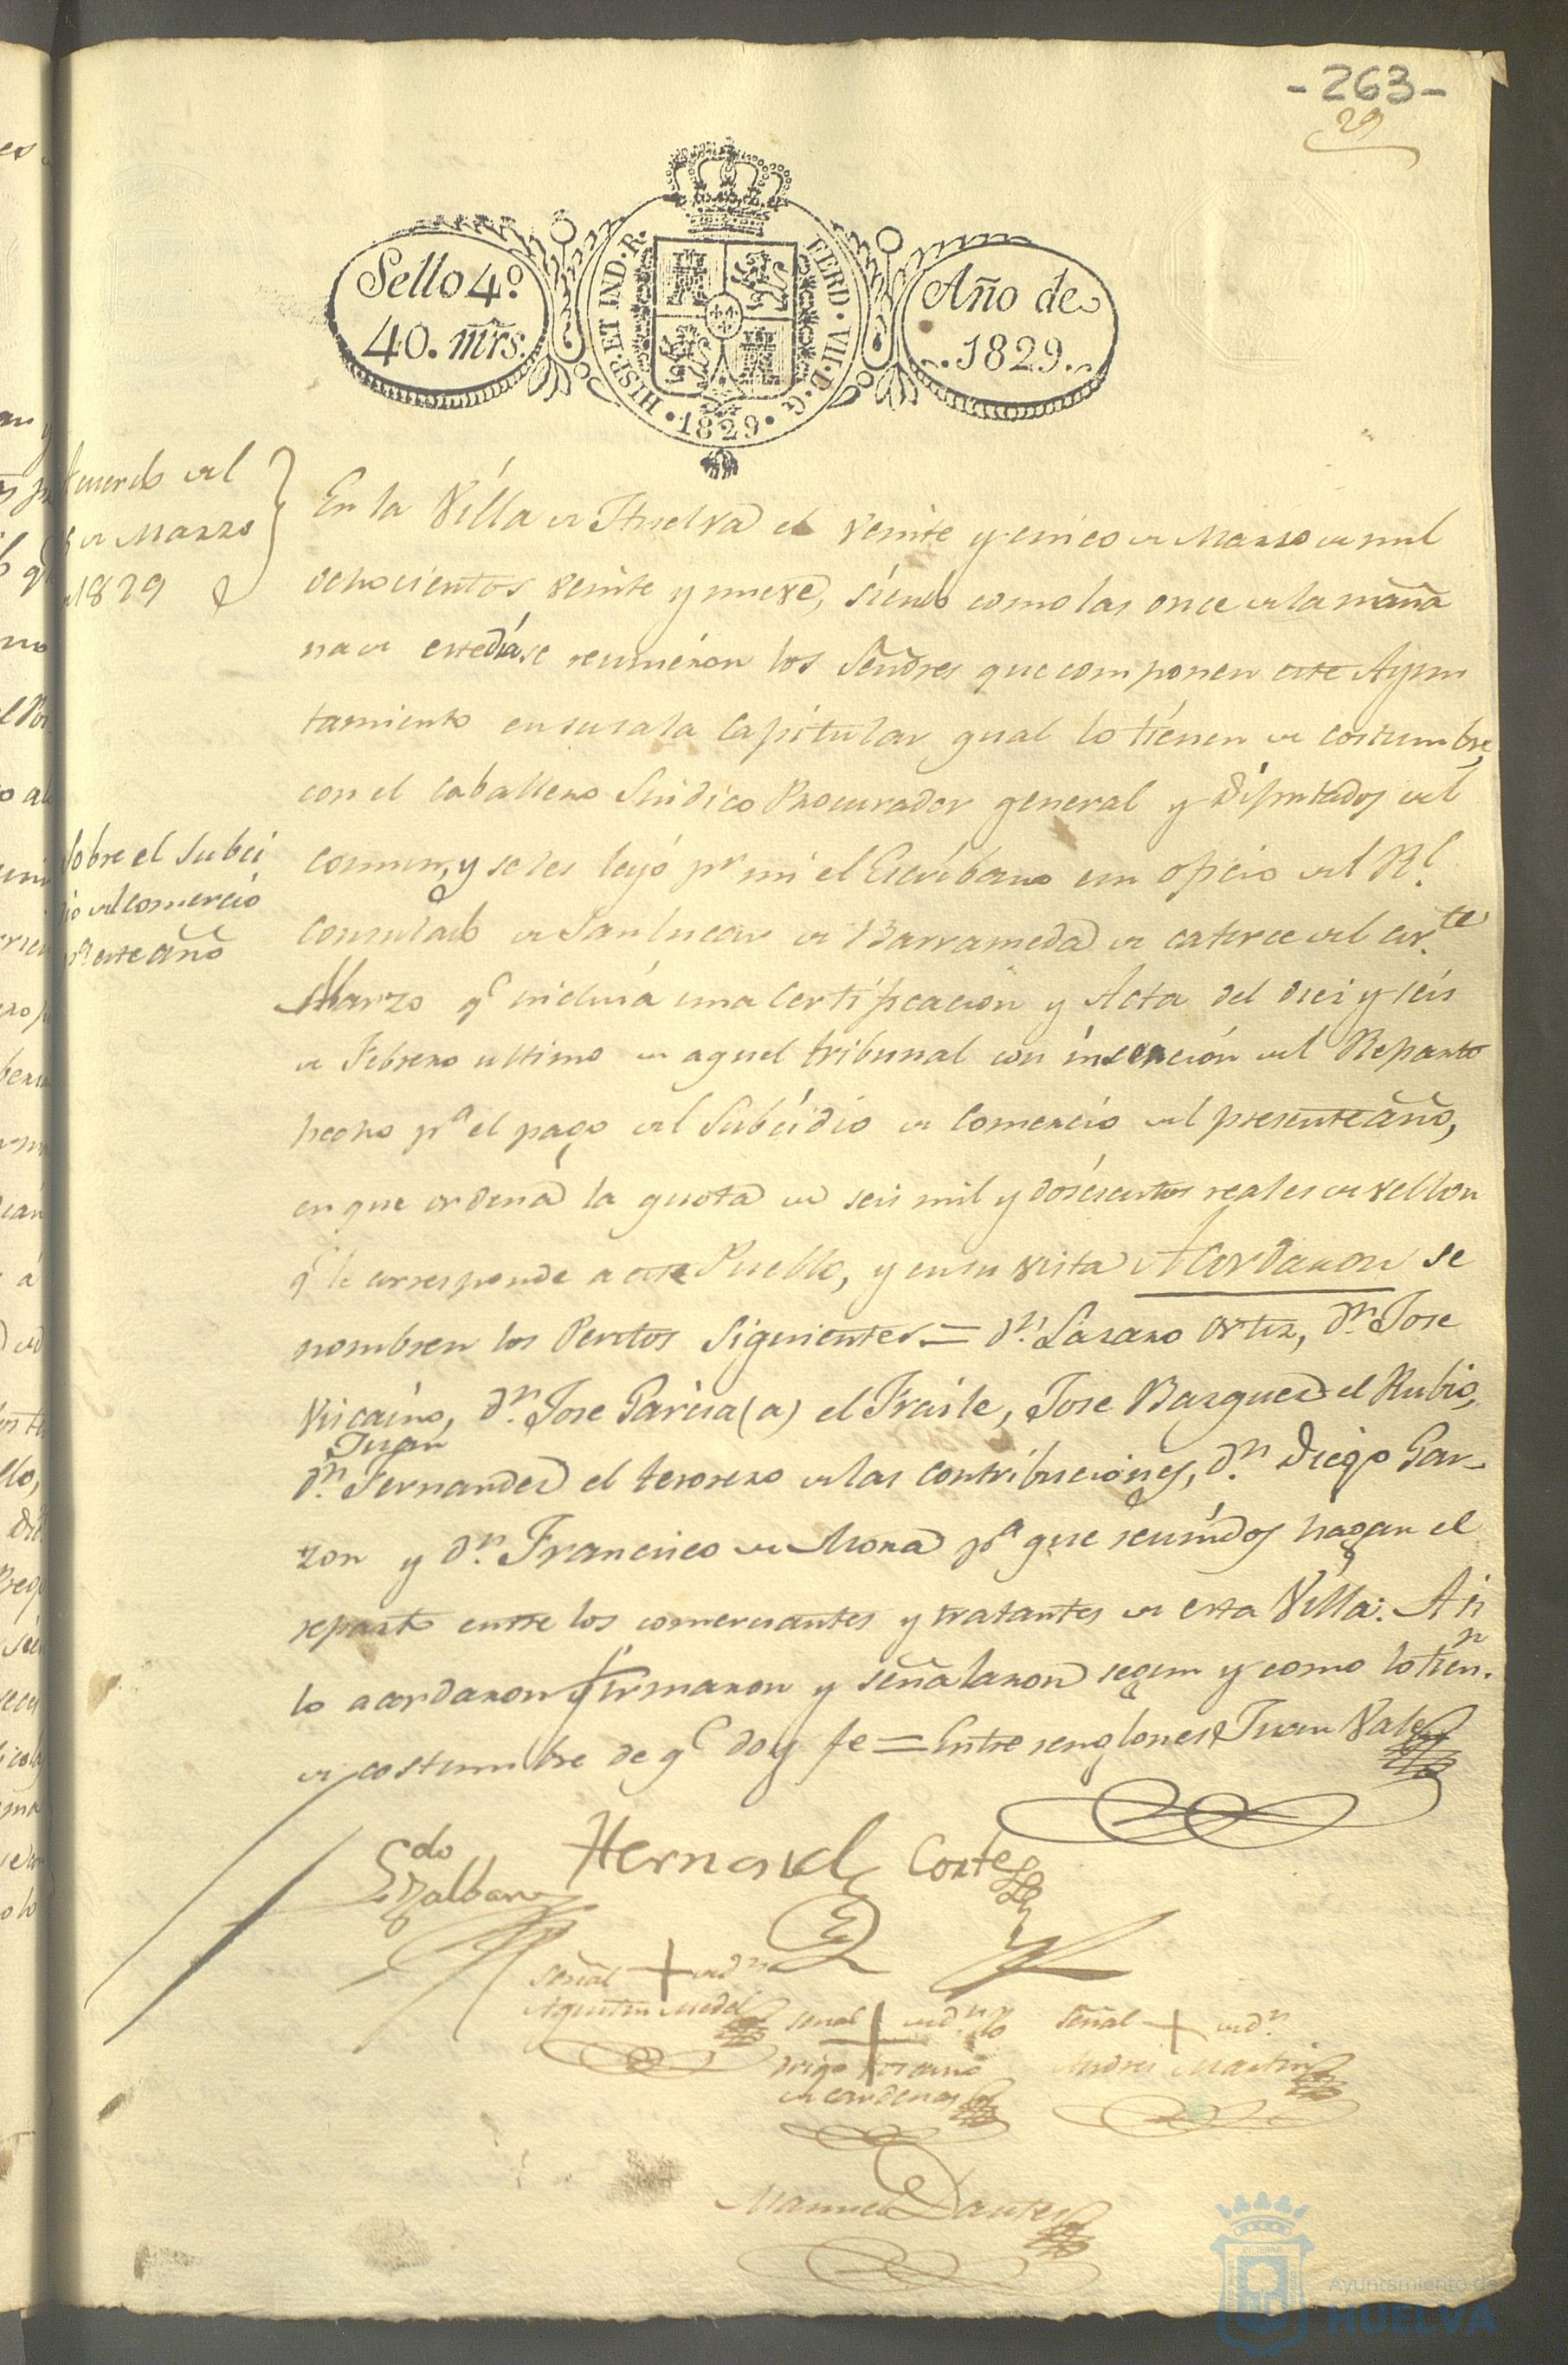 -263-
29
Sello 4º
40. mrs.
HISP. ET IND. R.
FERD. VII. D. G.
1829
Año de
1829.
cuerdo del
de Marzo
1829
En la Villa de Huelva el veinte y cinco de Marzo de mil
ochocientos veinte y nueve, siendo como las once de la maña
na de este dia se reunieron los Señores que componen este Ayun
tamiento en su sala Capitular qual lo tienen de costumbre,
con el caballero Sindico Procurador general y Diputados del
comun, y se les leyó pr mi el Escribano un oficio del Rl.
Consulado de Sanlucar de Barrameda de catorce del corte.
Marzo qe incluia una Certificacion y Acta del diez y seis
de Febrero ultimo de aquel tribunal con insercion del Reparto
hecho pa el pago del Subcidio de Comercio del presente año,
en que ordena la quota de seis mil y doscientos reales de vellon
qe le corresponde a este Pueblo, y en su vista Acordaron se
nombren los Peritos Siguientes = Dn. Lazaro Ortiz, Dn. Jose
Viscaino, Dn. Jose Garcia (a) el Fraile, Jose Bazquez el Rubio,
Juan
Dn. Fernandez el tesorero de las contribuciones, Dn. Diego Gar-
zon y Dn. Francisco de Mora pa que reunidos hagan el
reparto entre los comerciantes y tratantes de esta Villa: Asi
lo acordaron firmaron y señalaron segun y como lo tienn.
de costumbre de qe doy fe = Entre renglones Juan Vale
sobre el Subci
dio del comercio
pa este año
Hernand Cortes
Señal + de Dn
Agustin Medel
Señal + de Dn
de Cardenas
Señal + de Dn.
Andres Martin
Manuel Dantes
Ayuntamiento de
HUELVA